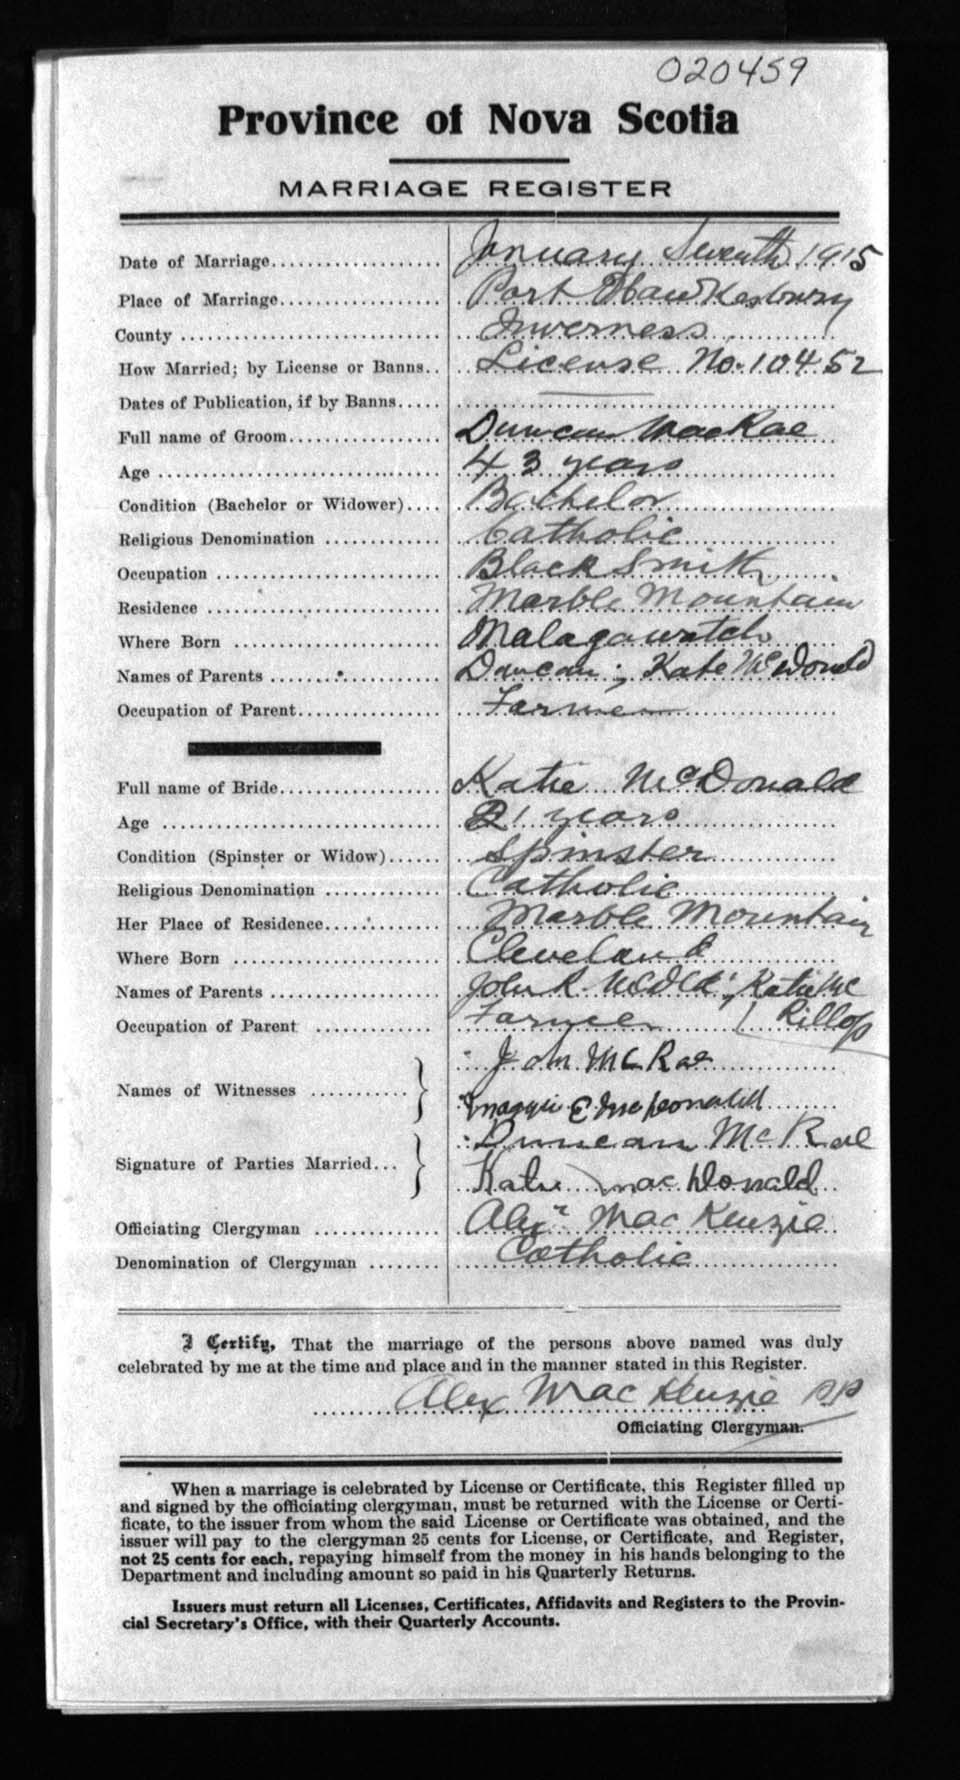 020459
Province of Nova Scotia
MARRIAGE REGISTER
Date of Marriage................... January Seventh 1915
Place of Marriage.................. Port Hawkesbury
County ............................. Inverness
How Married; by License or Banns.. License No. 10452
Dates of Publication, if by Banns..... ———
Full name of Groom................. Duncan MacRae
Age ............................... 43 years
Condition (Bachelor or Widower).... Bachelor
Religious Denomination ............ Catholic
Occupation ........................ Black Smith
Residence ......................... Marble Mountain
Where Born ........................ Malagawatch
Names of Parents .................. Duncan; Kate McDonald
Occupation of Parent............... Farmer
Full name of Bride................. Katie McDonald
Age ............................... 21 years
Condition (Spinster or Widow)...... Spinster
Religious Denomination ............ Catholic
Her Place of Residence............. Marble Mountain
Where Born ........................ Cleveland
Names of Parents .................. John R. McDld; Katie Mc
Occupation of Parent .............. Farmer
Names of Witnesses ........... McRae
Maggie E
Signature of Parties Married... Duncan McRae
Katie MacDonald
Officiating Clergyman ............. Alexr MacKenzie
Denomination of Clergyman ........ Catholic
I Certify, That the marriage of the persons above named was duly
celebrated by me at the time and place and in the manner stated in this Register.
Alex MacKenzie PP
Officiating Clergyman.
When a marriage is celebrated by License or Certificate, this Register filled up
and signed by the officiating clergyman, must be returned with the License or Certi-
ficate, to the issuer from whom the said License or Certificate was obtained, and the
issuer will pay to the clergyman 25 cents for License, or Certificate, and Register,
not 25 cents for each, repaying himself from the money in his hands belonging to the
Department and including amount so paid in his Quarterly Returns.
Issuers must return all Licenses, Certificates, Affidavits and Registers to the Provin-
cial Secretary's Office, with their Quarterly Accounts.